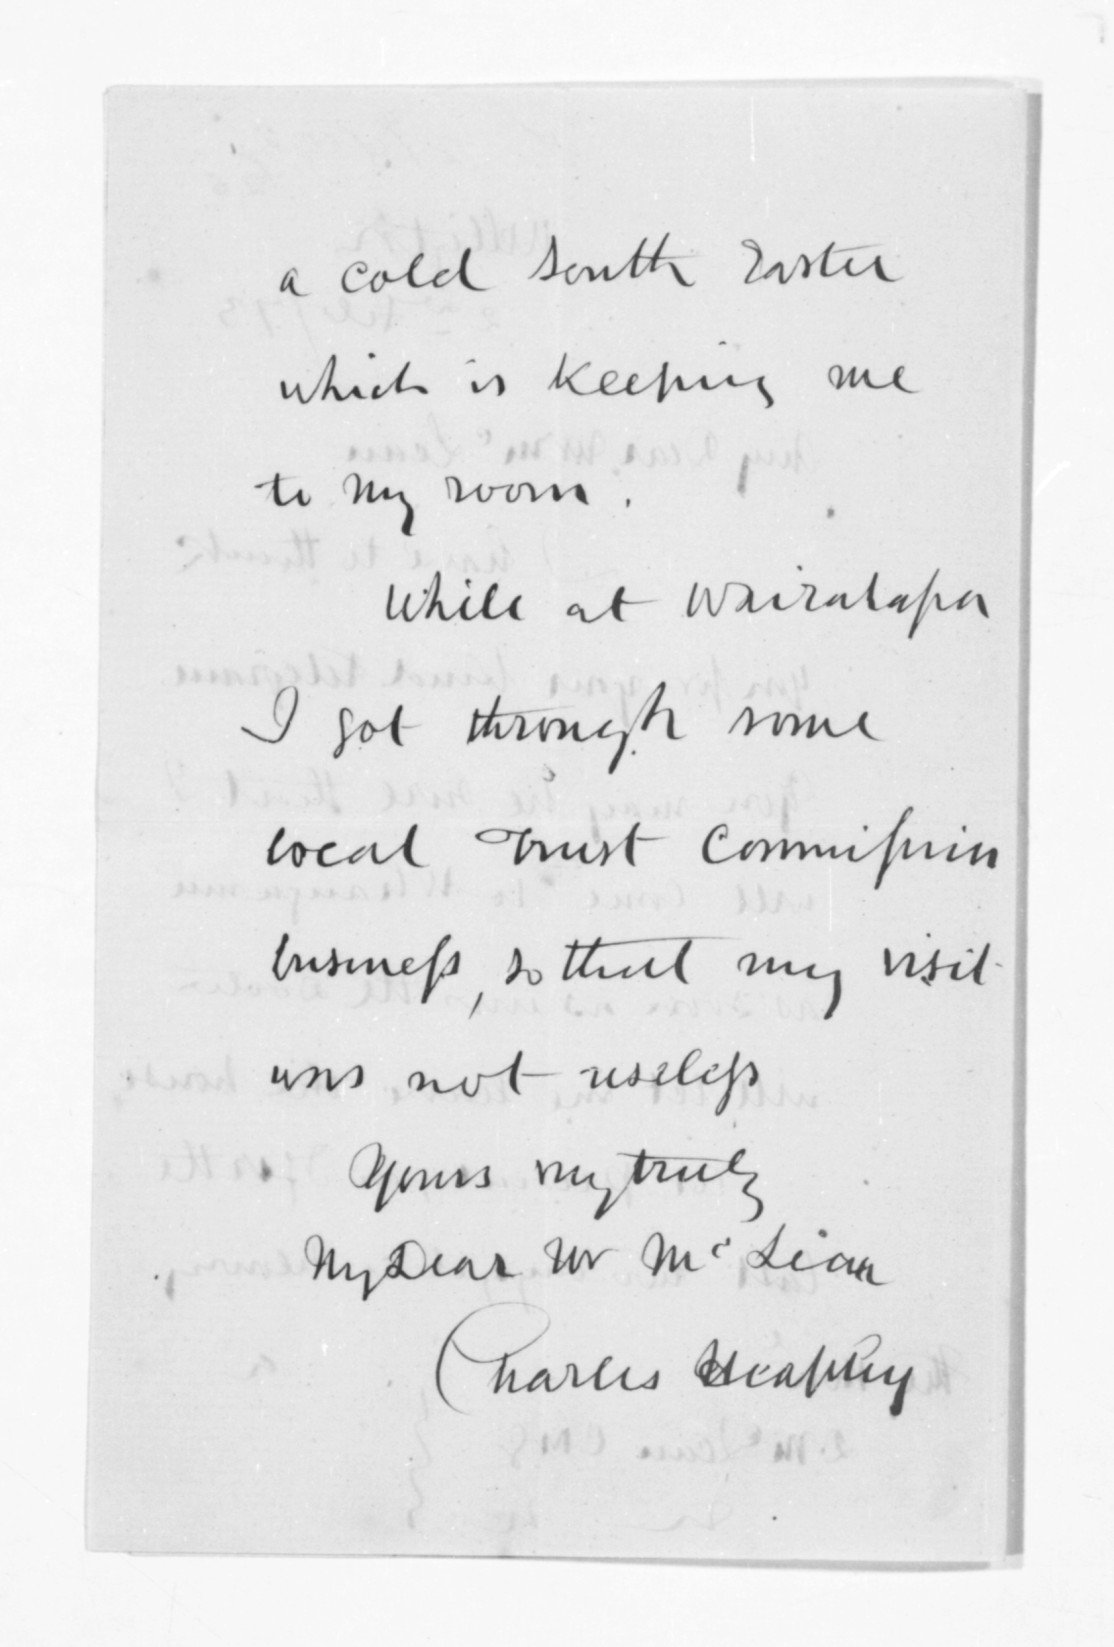 a cold South Easter
which is keeping me
to my room.
While at Wairarapa
I got through some
local Trust Commission
business, so that my visit
was not useless
Yours very truly
My Dear Mr McLean
Charles Heaphy